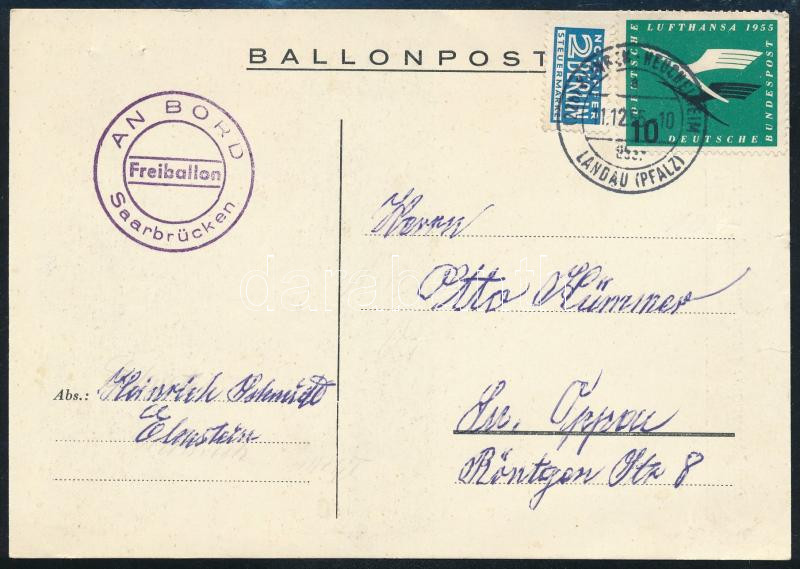 BALLONPOST
NOTOPFER
2 BERLIN
STEUERMARKE
DEUTSCHE LUFTHANSA 1955
DEUTSCHE BUNDESPOST
10
a
11.12.55.-10
LANDAU (PFALZ)
AN BORD
Freiballon
Saarbrücken
Herrn
Otto Kümmer
Lu. Oppau
Röntgen Str 8
Abs.: Heinrich Schmidt
Elmstein